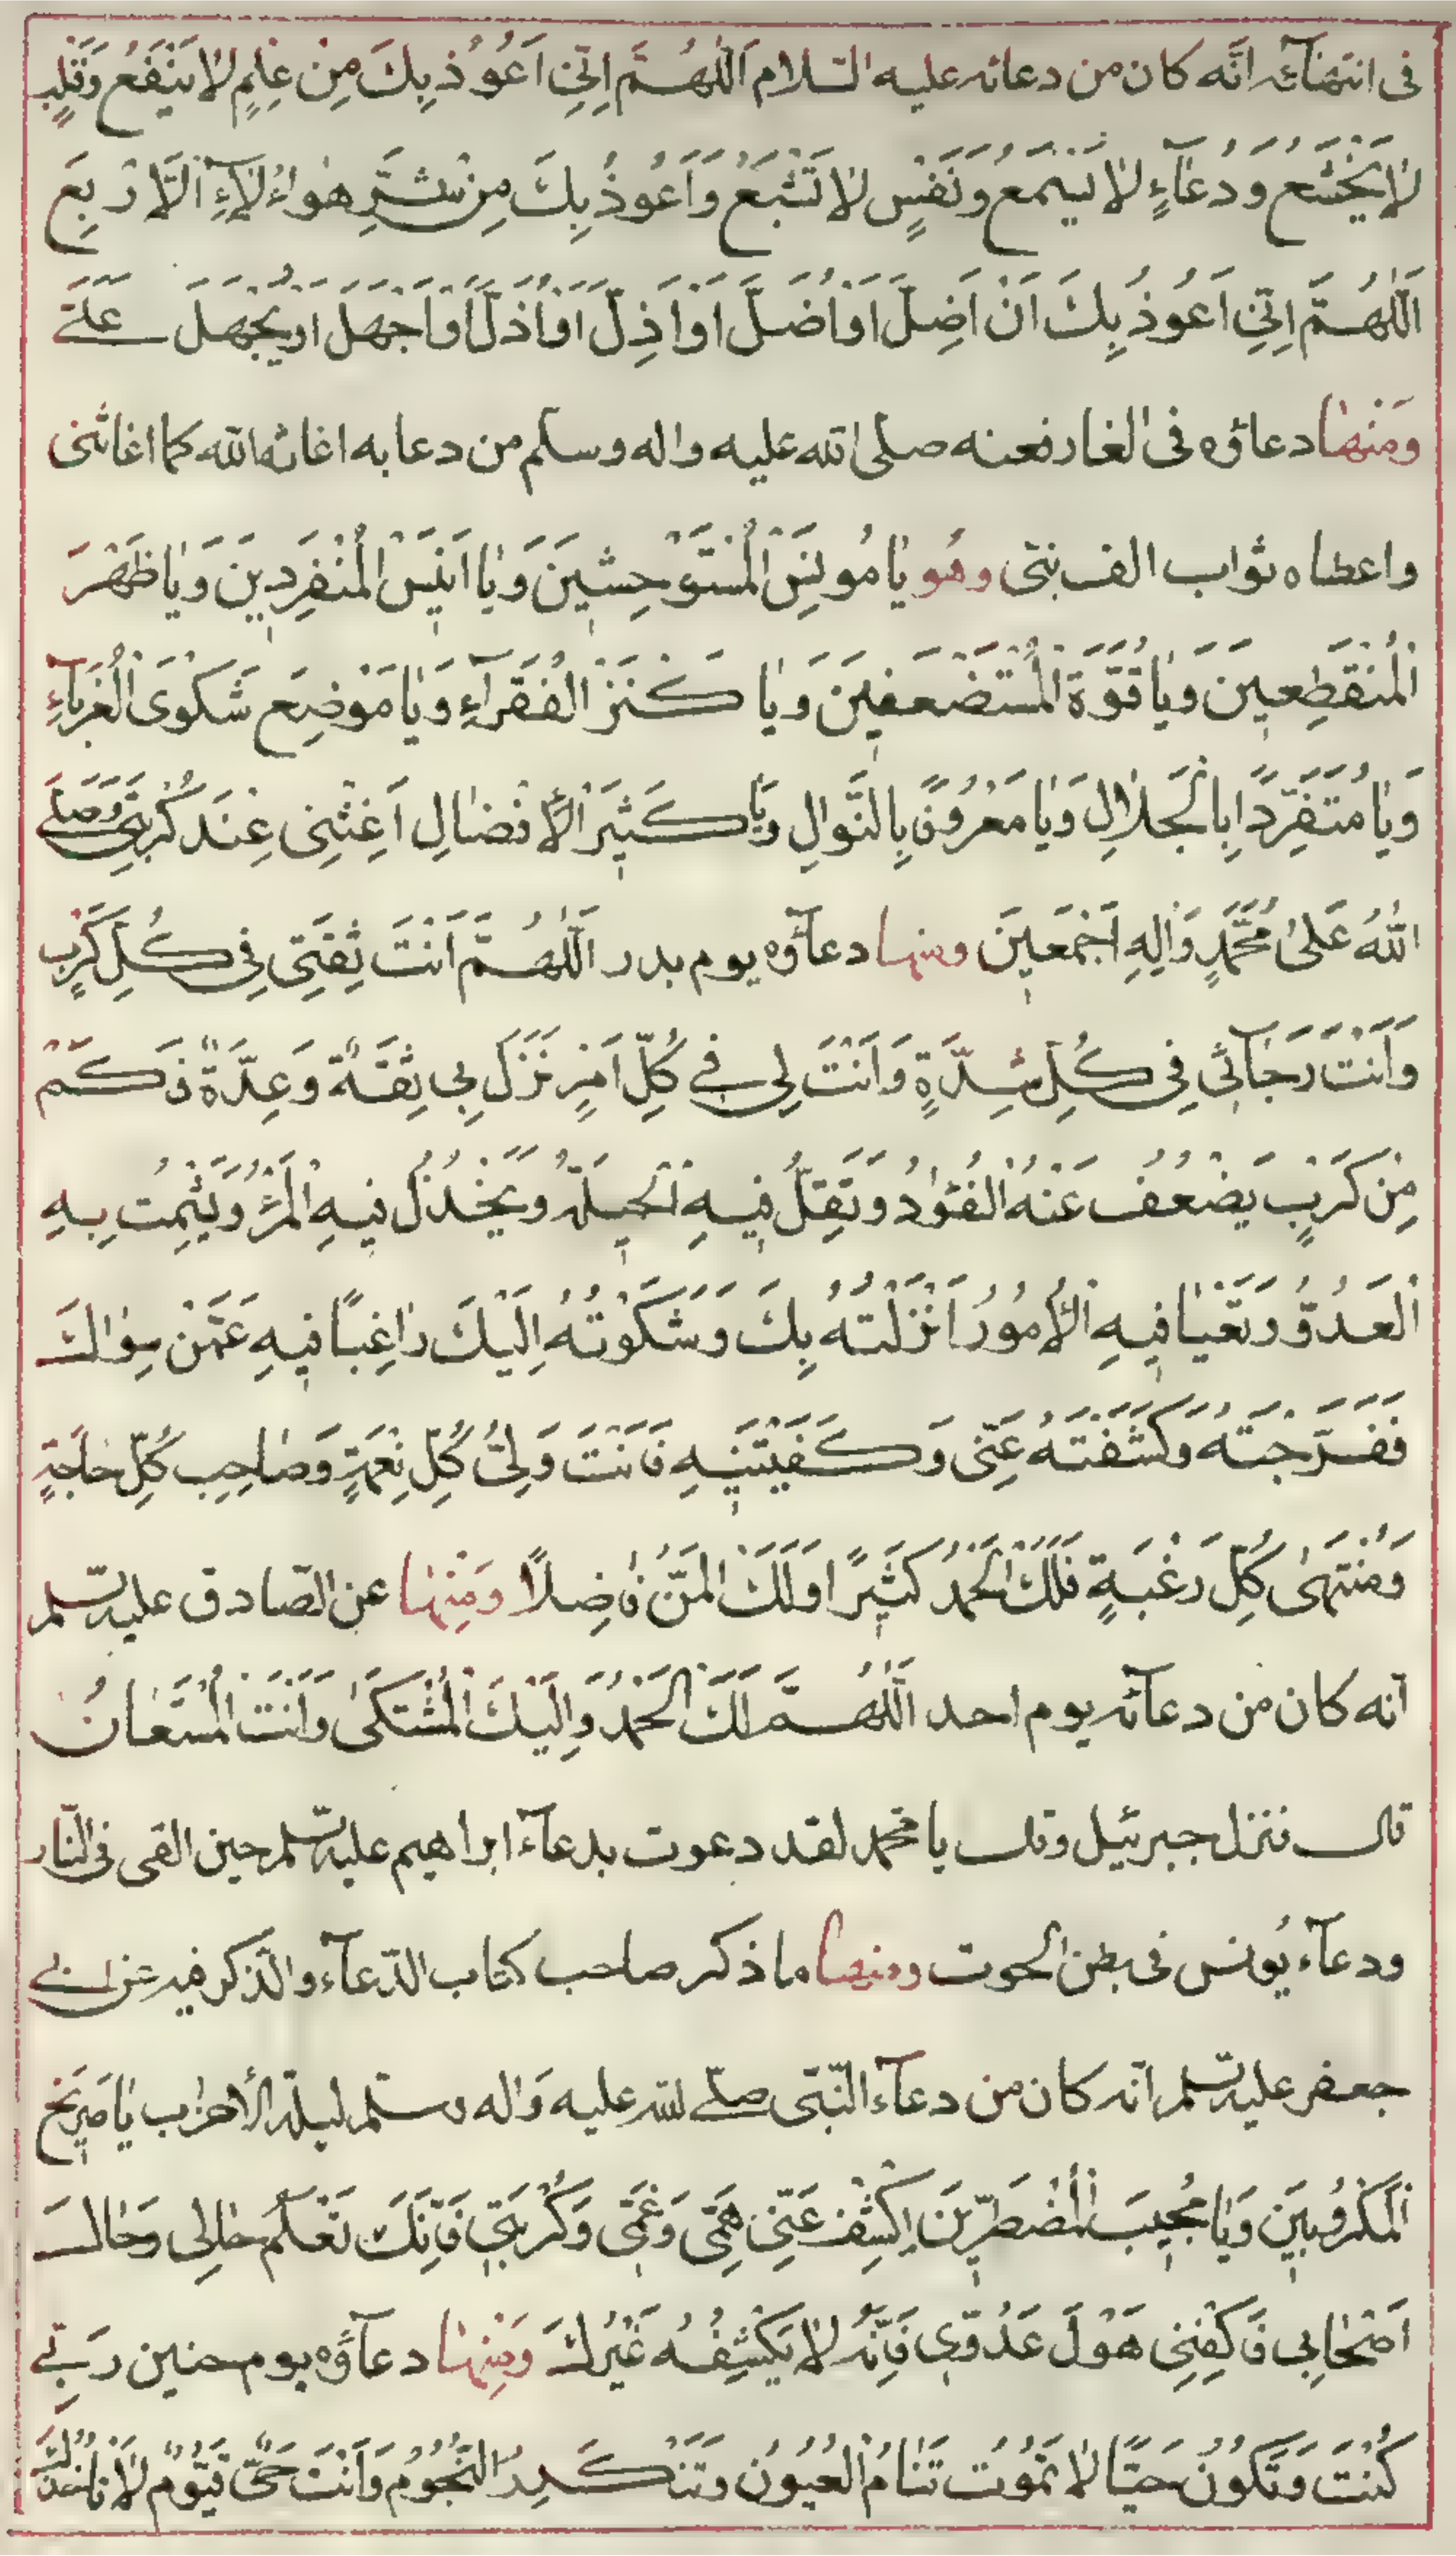 فى انتهائه انّه كان من دعائه عليه السلام اَللّٰهُمَّ اِنّى اَعُوذُ بِكَ مِنْ عِلْمٍ لاٰ يَنْفَعُ وَقَلْبٍ
لاٰ يَخْشَعُ وَدُعٰآءٍ لاٰ يُسْمَعُ وَنَفْسٍ لاٰ تَشْبَعُ وَاَعُوذُ بِكَ مِنْ شَرِّ هٰؤُلاٰءِ الْاَرْبَعِ
اَللّٰهُمَّ اِنّى اَعُوذُ بِكَ اَنْ اَضِلَّ اَوْ اُضَلَّ اَوْ اَذِلَّ اَوْ اُذَلَّ اَوْ اَجْهَلَ اَوْ يُجْهَلَ عَلَىَّ
وَمنها دعاؤه فى الغار فعنه صلى الله عليه واله وسلم من دعا به اغاثه الله كما اغاثنى
واعطاه ثواب الف نبّى وهو يٰا مُونِسَ الْمُسْتَوْحِشِينَ وَيٰا اَنِيسَ الْمُنْفَرِدِينَ وَيٰا ظَهْرَ
الْمُنْقَطِعِينَ وَيٰا قُوَّةَ الْمُسْتَضْعَفِينَ وَيٰا كَنْزَ الْفُقَرٰآءِ وَيٰا مَوْضِعَ شَكْوَى الْغُرَبٰآءِ
وَيٰا مُتَفَرِّدًا بِالْجَلاٰلِ وَيٰا مَعْرُوفًا بِالنَّوالِ وَيٰا كَثِيرَ الْاِفْضٰالِ اَغِثْنِى عِنْدَ كُرْبَتِى وَصَلَّى
اللّٰهُ عَلىٰ مُحَمَّدٍ وَاٰلِهِ اَجْمَعِينَ ومنها دعآؤه يوم بدر اَللّٰهُمَّ اَنْتَ ثِقَتِى فِى كُلِّ كَرْبٍ
وَاَنْتَ رَجٰآئى فِى كُلِّ شِدَّةٍ وَاَنْتَ لِى فِى كُلِّ اَمْرٍ نَزَلَ بِى ثِقَةٌ وَعِدَّةٌ فَكَمْ
مِنْ كَرْبٍ يَضْعُفُ عَنْهُ الْفُؤٰادُ وَتَقِلُّ فِيهِ الْحِيلَةُ وَيَخْذُلُ فِيهِ الْمَرْءُ وَيَشْمِتُ بِهِ
الْعَدُوُّ وَتَعْيٰا فِيهِ الْاُمُورُ اَنْزَلْتُهُ بِكَ وَشَكَوْتُهُ اِلَيْكَ رٰاغِبًا فِيهِ عَمَّنْ سِوٰاكَ
فَفَرَّجْتَهُ وَكَشَفْتَهُ عَنّى وَكَفَيْتَنِيهِ فَاَنْتَ وَلِىُّ كُلِّ نِعْمَةٍ وَصٰاحِبُ كُلِّ حٰاجَةٍ
وَمُنْتَهىٰ كُلِّ رَغْبَةٍ فَلَكَ الْحَمْدُ كَثِيرًا وَلَكَ الْمَنُّ فٰاضِلًا وَمِنْها عن الصّادق عليه السّلم
انّه كان من دعآئه يوم احد اَللّٰهُمَّ لَكَ الْحَمْدُ وَاِلَيْكَ الْمُشْتَكىٰ وَاَنْتَ الْمُسْتَعٰانُ
قال فنزل جبرئيل وقال يا محمّد لقد دعوت بدعآء ابراهيم عليه السّلم حين القى فى النّار
ودعآء يُونس فى بطن الحوت ومنها ما ذكر صاحب كتاب الدّعآء والذّكر فيه عن ابى
جعفر عليه السّلم انّه كان من دعآء النّبّى صلّى الله عليه وَاله وسلّم ليلة الأحزاب يٰا صَرِيخَ
الْمَكْرُوبِينَ وَيٰا مُجِيبَ الْمُضْطَرِّينَ اِكْشِفْ عَنّى هَمّى وَغَمّى وَكُرْبَتِى فَاِنَّكَ تَعْلَمُ حٰالِى وَحٰالَ
اَصْحٰابِى فَاكْفِنِى هَوْلَ عَدُوّى فَاِنَّهُ لاٰ يَكْشِفُهُ غَيْرُكَ وَمِنْها دعآؤه يوم حنين رَبّى
كُنْتَ وَتَكُونُ حَيًّا لاٰ تَمُوتُ تَنٰامُ الْعُيُونُ وَتَنْكَدِرُ النُّجُومُ وَاَنْتَ حَىٌّ قَيُّومٌ لاٰ تَأْخُذُكَ